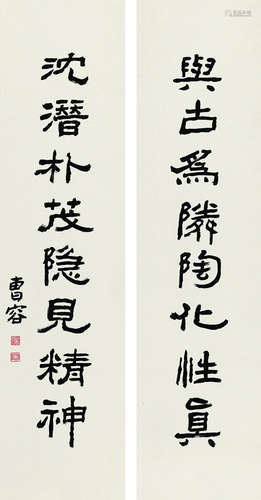 與古為隣陶化性真
沈潛朴茂隐見精神
曹容